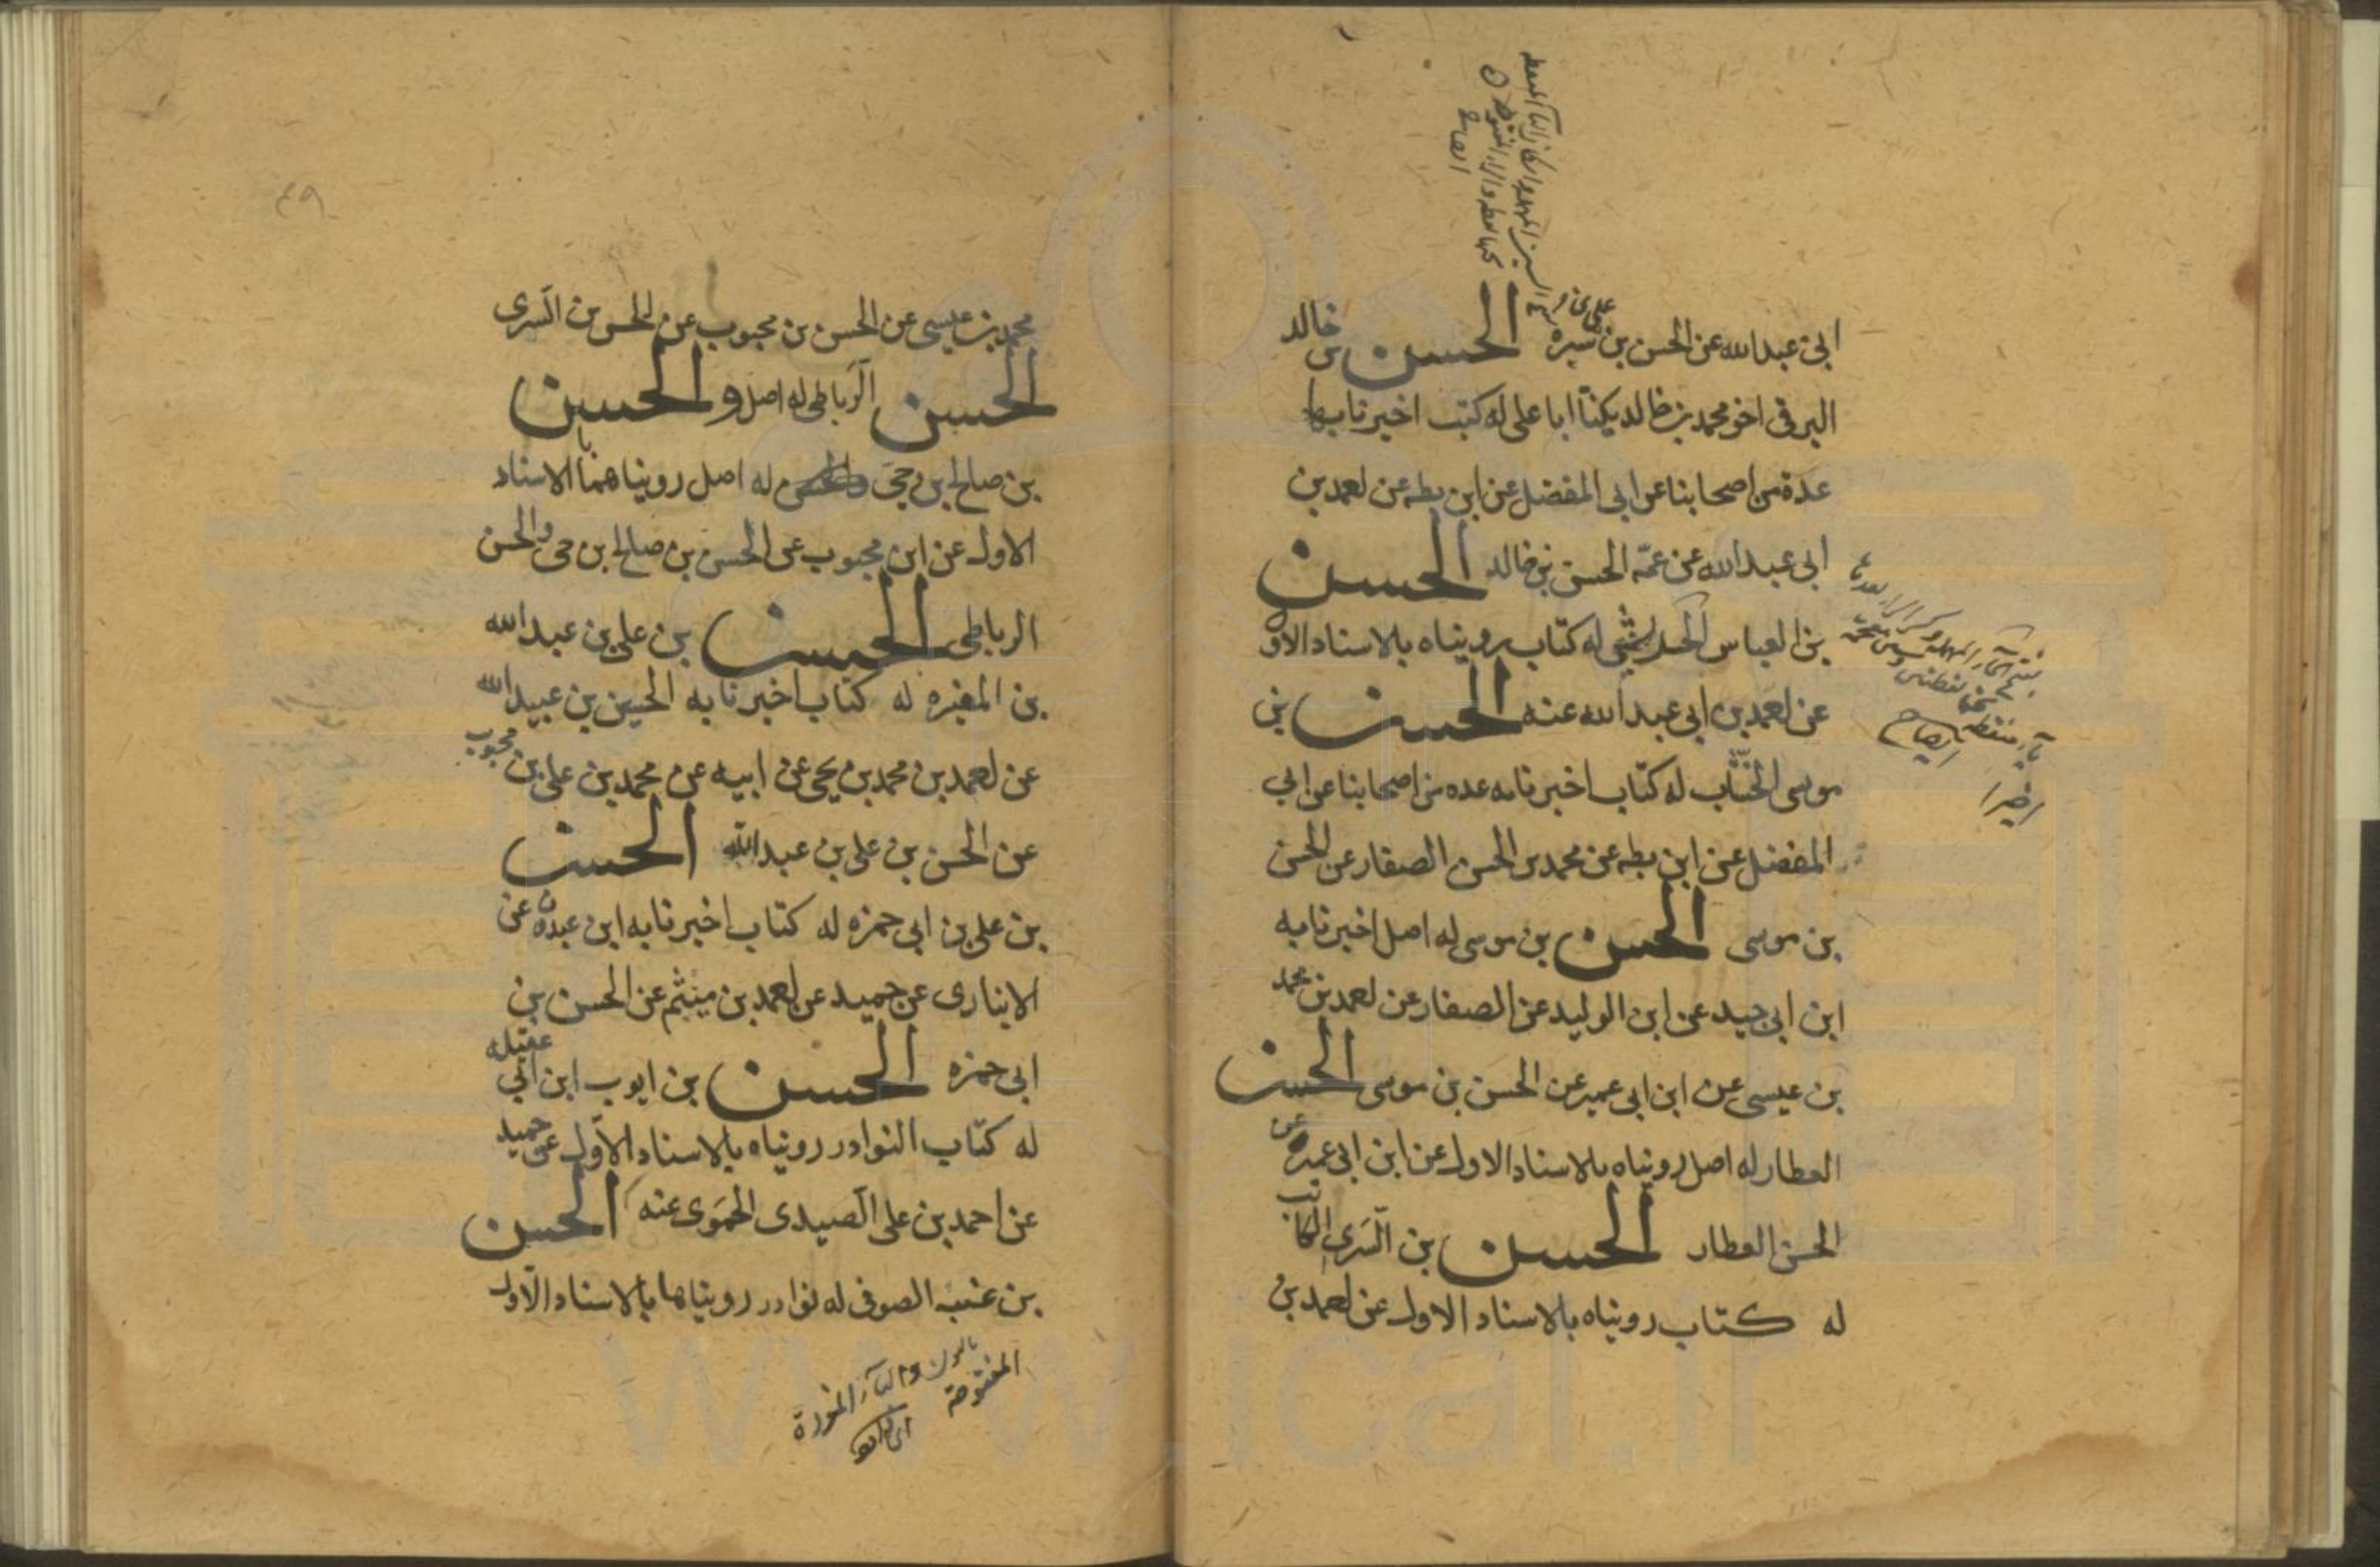 ابى عبدالله عن الحسن بن على بن سبره الحسن بن خالد
البرقى اخو محمد بن خالد يكنا ابا على له كتب اخبرنا بها
عدة من اصحابنا عن ابى المفضل عن ابن بطه عن احمد بن
ابى عبدالله عن عمّه الحسن بن خالد الحسن
بن العباس له كتاب رويناه بالاسناد الاول
عن احمد بن ابى عبدالله عنه الحسن بن
موسى الخشّاب له كتاب اخبرنا به عده من اصحابنا عن ابى
المفضل عن ابن بطه عن محمد بن الحسن الصفار عن الحسن
بن موسى الحسن بن موسى له اصل اخبرنا به
ابن ابى جيد عن ابن الوليد عن الصفار عن احمد بن محمد
بن عيسى عن ابن ابى عمير عن الحسن بن موسى الحسن
العطار له اصل رويناه بالاسناد الاول عن ابن ابى عمير عن
الحسن العطار الحسن بن السَّرى الكاتب
له كتاب رويناه بالاسناد الاول عن احمد بن
ايضاح
٤٩
محمد بن عيسى عن الحسن بن محبوب عن الحسن بن السّرى
الحسن الرّباطى له اصل و الحسن
بن صالح بن حىّ له اصل رويناهما بالاسناد
الاول عن ابن محبوب عن الحسن بن صالح بن حى والحسن
الرباطى الحسن بن على بن عبدالله
بن المغيره له كتاب اخبرنا به الحسين بن عبيدالله
عن احمد بن محمد بن يحيى عن ابيه عن محمد بن على بن محبوب
عن الحسن بن على بن عبدالله الحسن
بن على بن ابى حمزه له كتاب اخبرنا به ابن عبدون عن
الانبارى عن حميد عن احمد بن ميثم عن الحسن بن
ابى حمزه الحسن بن ايوب ابن ابى عقيله
له كتاب النوادر رويناه بالاسناد الاوّل عن حميد
عن احمد بن على الصيدى الحَمَوى عنه الحسن
بن عنبسه الصوفى له نوادر رويناها بالاسناد الاول
بالنون والبآء المفردة
المفتوحة